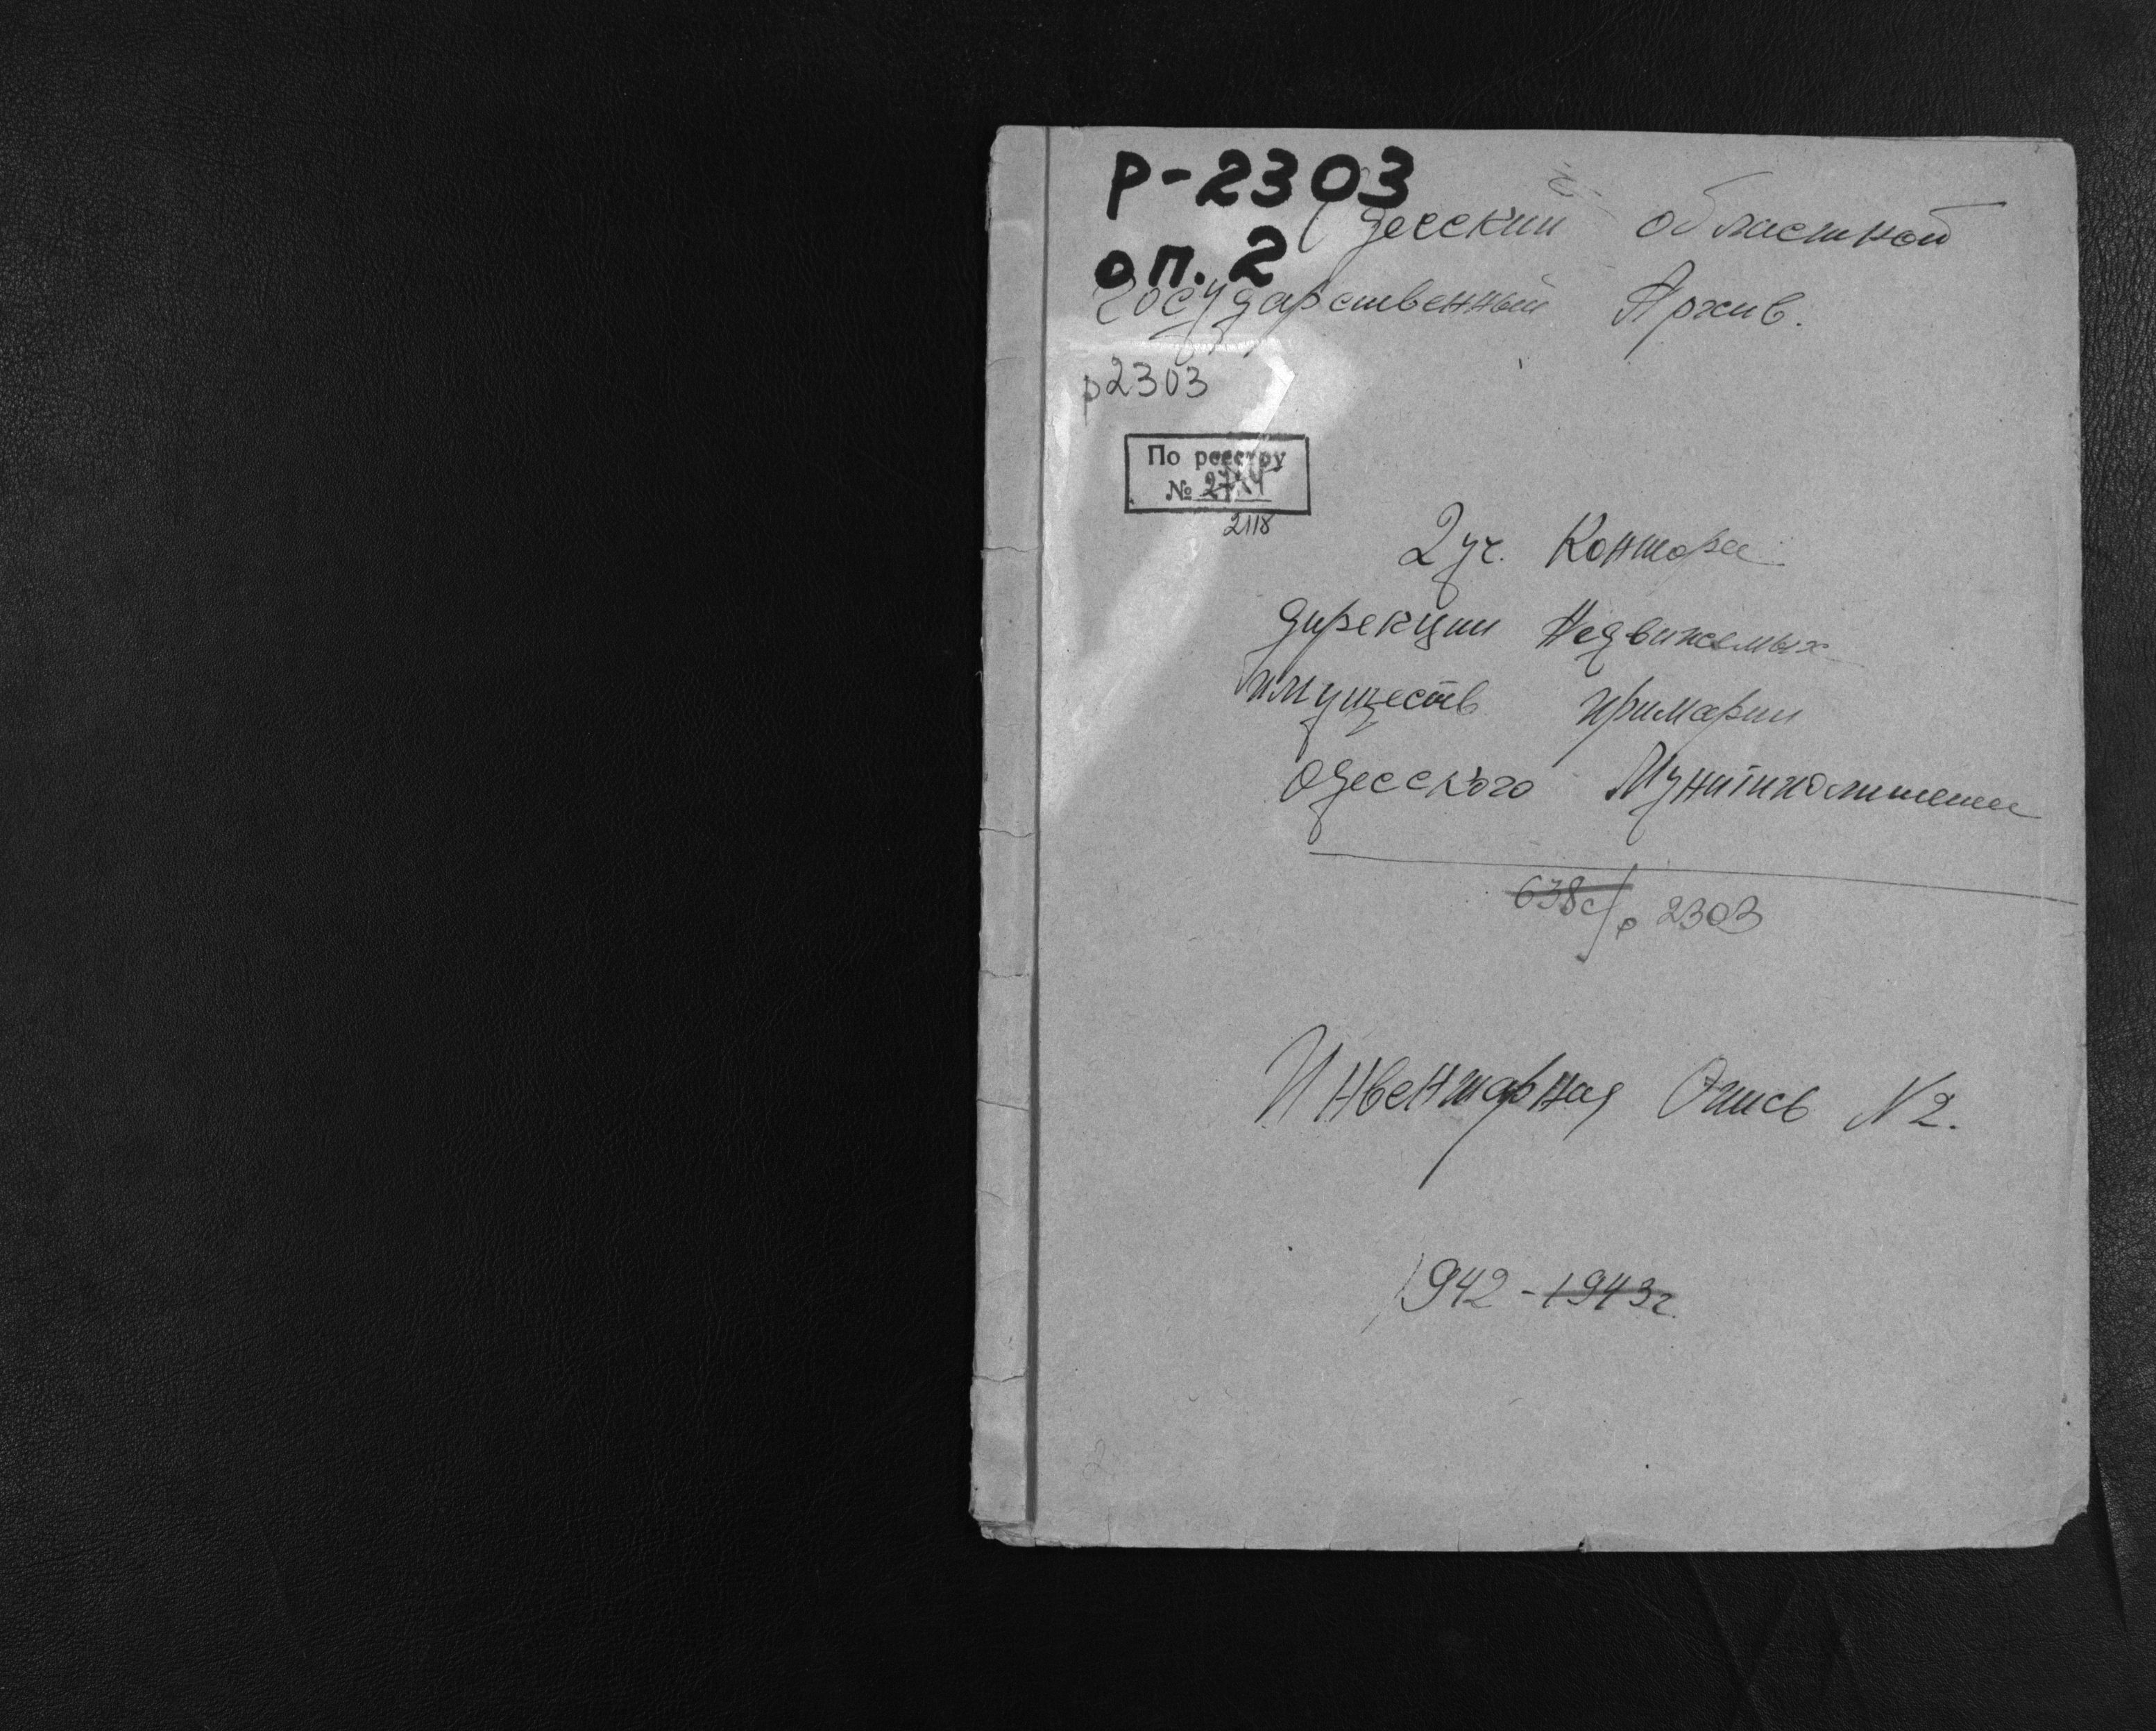 Р-2303
оп. 2
Одесский областной
Государственный Архив.
р2303
По реестру
№
2118
2 уч. Контора
дирекции Недвижемых
имуществ примарии
Одесского Муниципалитета
638с/р 2303
Инвентарная Опись N 2.
1942-1943г